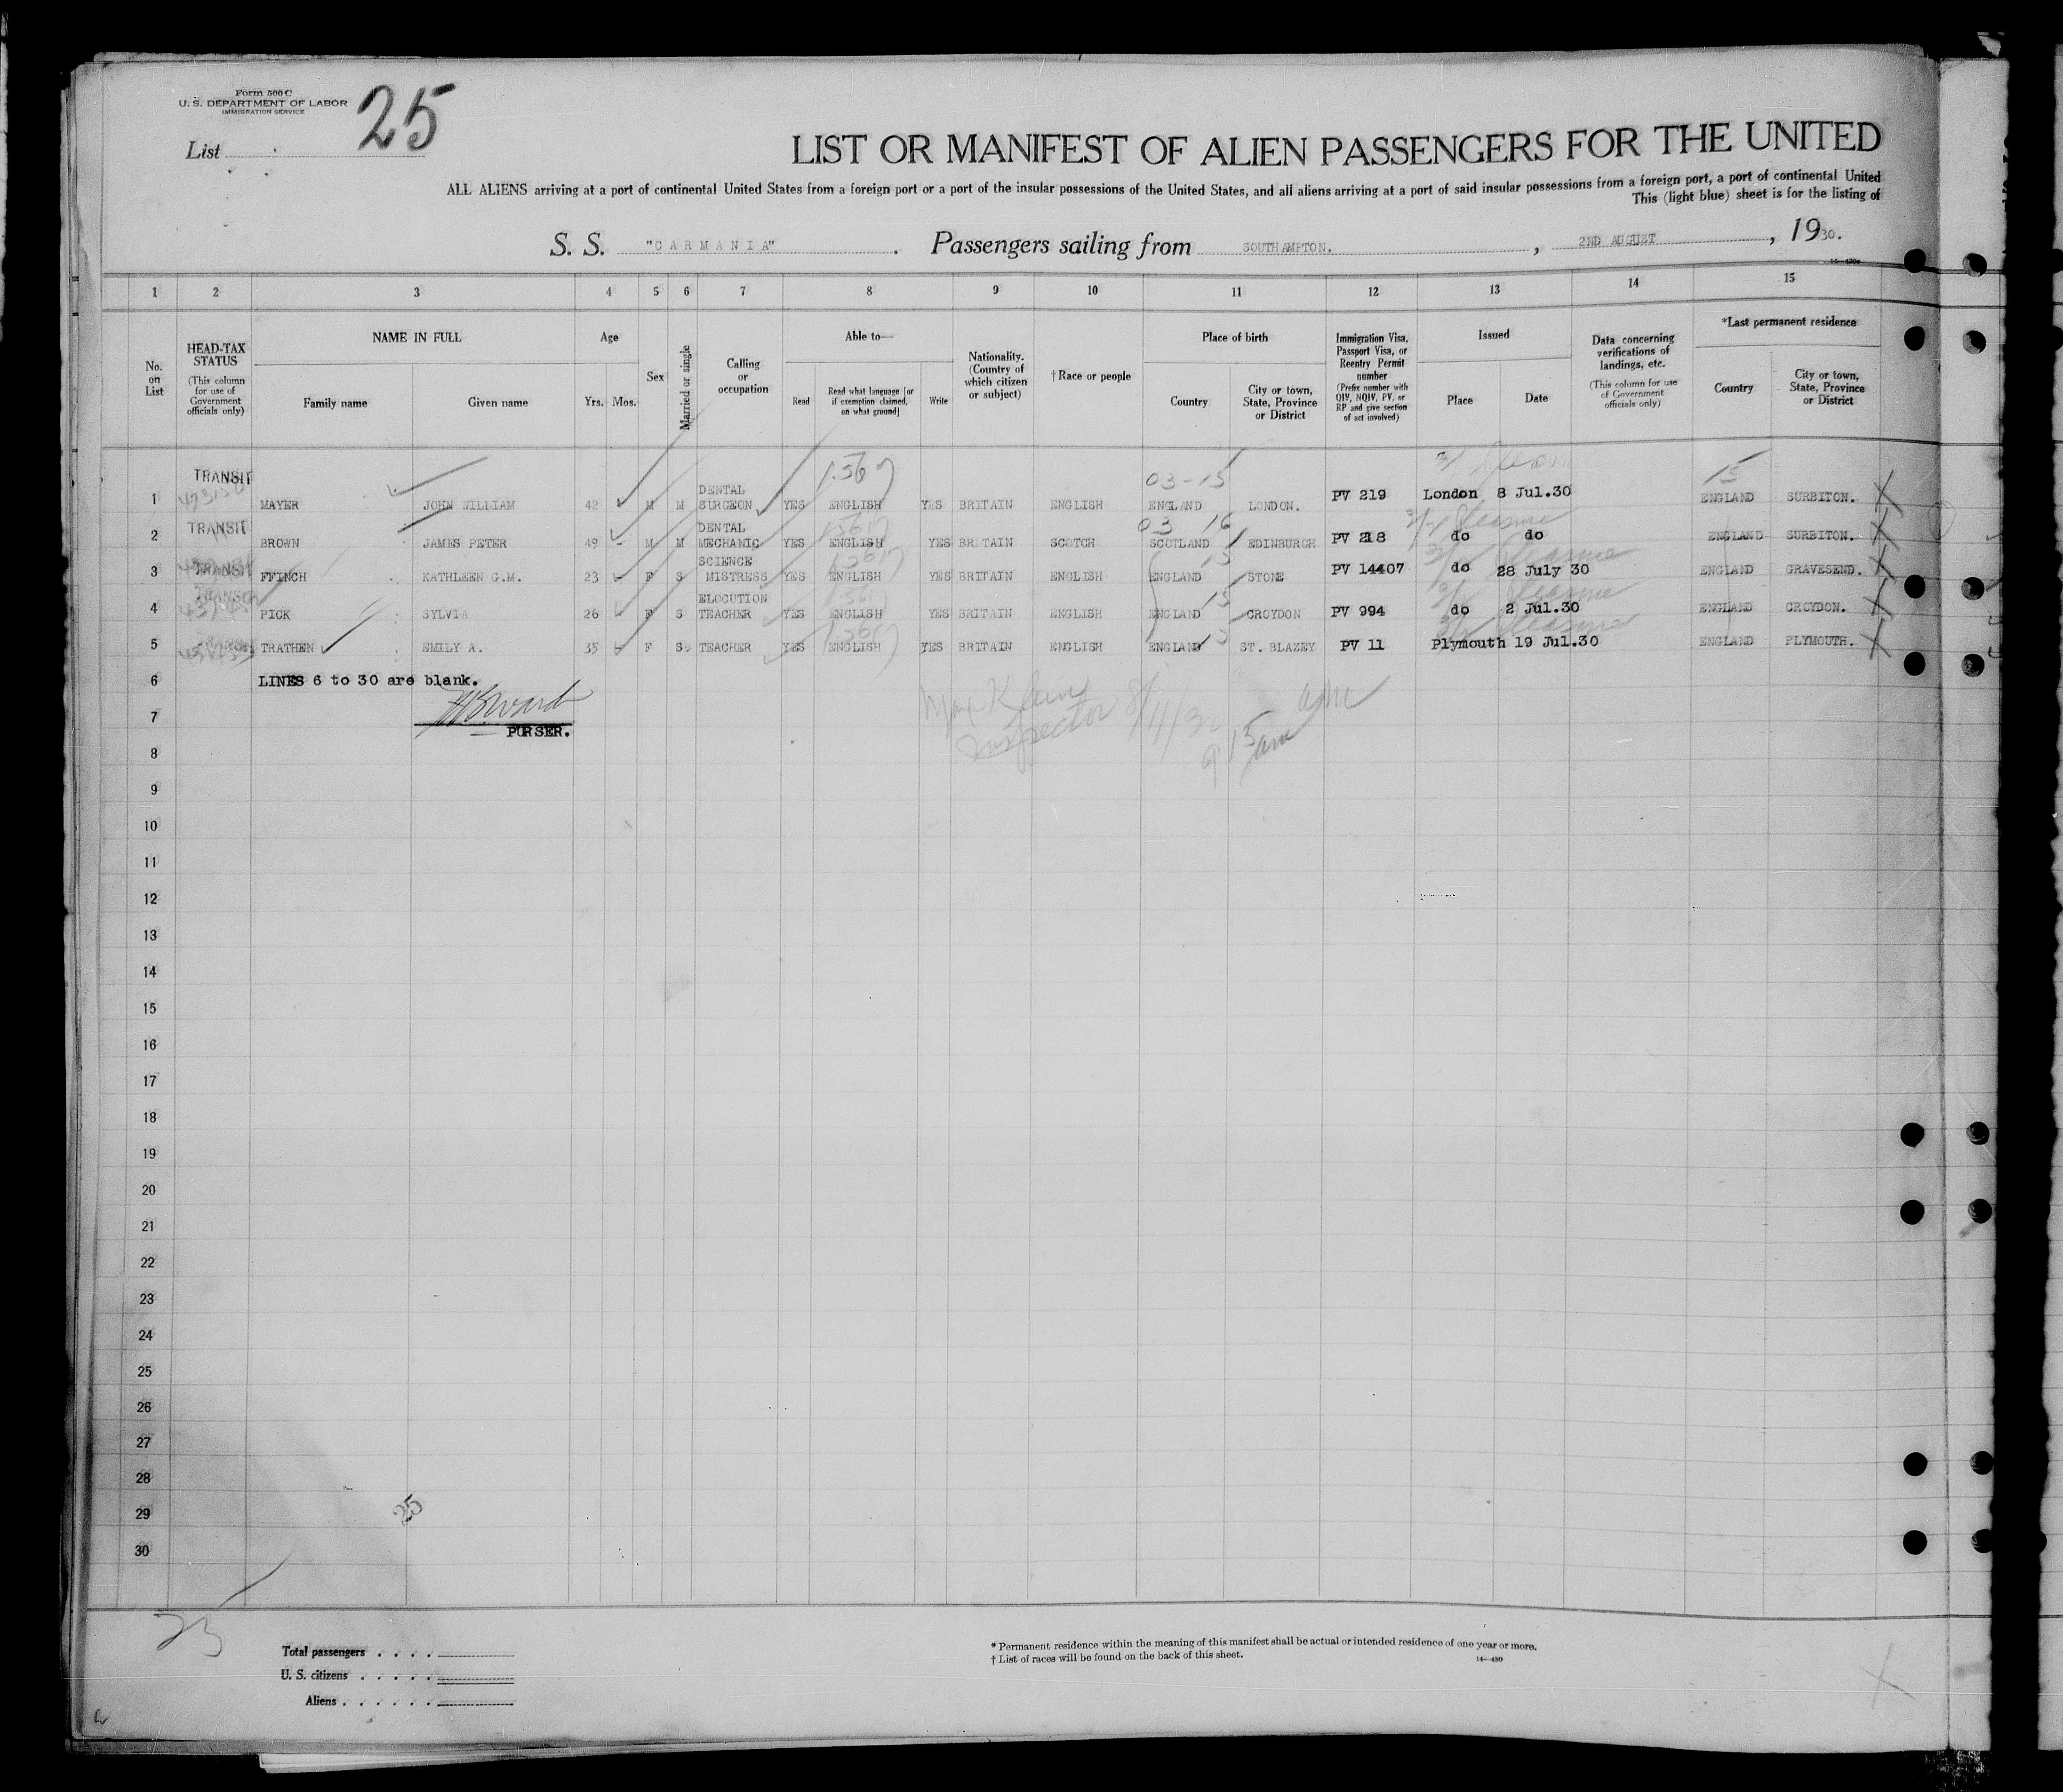 Form 500 C
U. S. DEPARTMENT OF LABOR
IMMIGRATION SERVICE
List 25
LIST OR MANIFEST OF ALIEN PASSENGERS FOR THE UNITED
ALL ALIENS arriving at a port of continental United States from a foreign port or a port of the insular possessions of the United States, and all aliens arriving at a port of said insular possessions from a foreign port, a port of continental United
This (light blue) sheet is for the listing of
S. S. "CARMANIA". Passengers sailing from SOUTHAMPTON. , 2ND AUGUST , 1930.
1 2 3 4 5 6 7 8 9 10 11 12 13 14 15
No. on List
HEAD-TAX STATUS
(This column for use of Government officials only)
NAME IN FULL
Family name
Given name
Age
Yrs. Mos.
Sex
Married or single
Calling or occupation
Able to—
Read
Read what language [or if exemption claimed, on what ground]
Write
Nationality. (Country of which citizen or subject)
†Race or people
Place of birth
Country
City or town, State, Province or District
Immigration Visa, Passport Visa, or Reentry Permit number
(Prefix number with QIV, NQIV, PV, or RP and give section of act involved)
Issued
Place
Date
Data concerning verifications of landings, etc.
(This column for use of Government officials only)
*Last permanent residence
Country
City or town, State, Province or District
1 TRANSIT MAYER JOHN WILLIAM 42 M M DENTAL SURGEON YES ENGLISH YES BRITAIN ENGLISH 03-15 ENGLAND LONDON. PV 219 London 8 Jul.30 15 ENGLAND SURBITON. X
2 TRANSIT BROWN JAMES PETER 49 M M DENTAL MECHANIC YES ENGLISH YES BRITAIN SCOTCH 03 16 SCOTLAND EDINBURGH PV 218 do do ENGLAND SURBITON. X
3 TRANSIT FFINCH KATHLEEN G.M. 23 F S SCIENCE MISTRESS YES ENGLISH YES BRITAIN ENGLISH 15 ENGLAND STONE PV 14407 do 28 July 30 ENGLAND GRAVESEND. X
4 TRANSIT PICK SYLVIA 26 F S ELOCUTION TEACHER YES ENGLISH YES BRITAIN ENGLISH 15 ENGLAND CROYDON PV 994 do 2 Jul.30 ENGLAND CROYDON. X
5 TRATHEN EMILY A. 35 F S TEACHER YES ENGLISH YES BRITAIN ENGLISH 15 ENGLAND ST. BLAZEY PV 11 Plymouth 19 Jul.30 ENGLAND PLYMOUTH. X
6 LINES 6 to 30 are blank.
7
PURSER.
Inspector
8
9
10
11
12
13
14
15
16
17
18
19
20
21
22
23
24
25
26
27
28
29 25
30
25
Total passengers
U. S. citizens
Aliens
* Permanent residence within the meaning of this manifest shall be actual or intended residence of one year or more.
† List of races will be found on the back of this sheet.
14—430